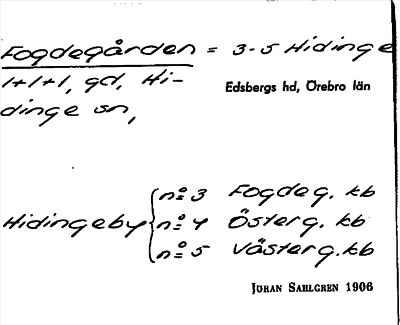 Fogdegården = 3-5 Hidinge
1+1+1, gd, Hi-
dinge sn,
Edsbergs hd, Örebro län
nº 3 Fogdeg. kb
Hidingeby nº 4 Österg. kb
nº 5 Västerg. kb
JOHAN SAHLGREN 1906